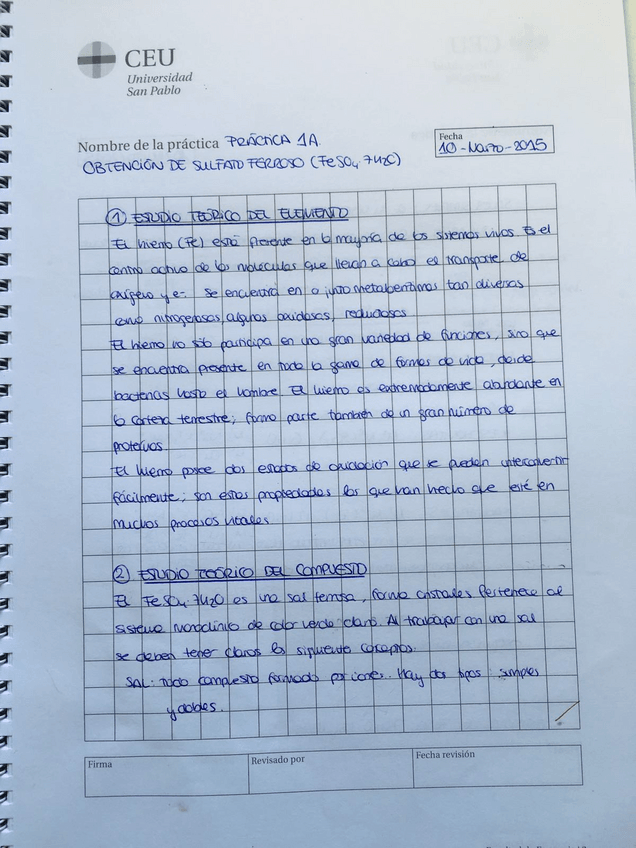 CEU
Universidad
San Pablo
Nombre de la práctica PRÁCTICA 1A
Fecha
10-Marzo-2015
OBTENCIÓN DE SULFATO FERROSO (FeSO4 7H2O)
① ESTUDIO TEÓRICO DEL ELEMENTO
El hierro (Fe) está presente en la mayoría de los sistemas vivos. Es el
centro activo de las moléculas que llevan a cabo el transporte de
oxígeno y e-. Se encuentra en metaloenzimas tan diversas
como nitrogenasas, algunas oxidasas, reductasas
El hierro no sólo participa en una gran variedad de funciones, sino que
se encuentra presente en toda la gama de formas de vida, desde
bacterias hasta el hombre. El hierro es extremadamente abundante en
la corteza terrestre; forma parte también de un gran número de
proteínas
El hierro posee dos estados de oxidación que se pueden interconvertir
fácilmente; son estas propiedades las que han hecho que esté en
muchos procesos vitales
② ESTUDIO TEÓRICO DEL COMPUESTO
El FeSO4 7H2O es una sal ferrosa, forma cristales. Pertenece al
sistema monoclínico de color verde claro. Al trabajar con una sal
se deben tener claros los siguiente conceptos.
SAL: Todo compuesto formado por iones. Hay dos tipos: simples
y dobles.
Firma
Revisado por
Fecha revisión